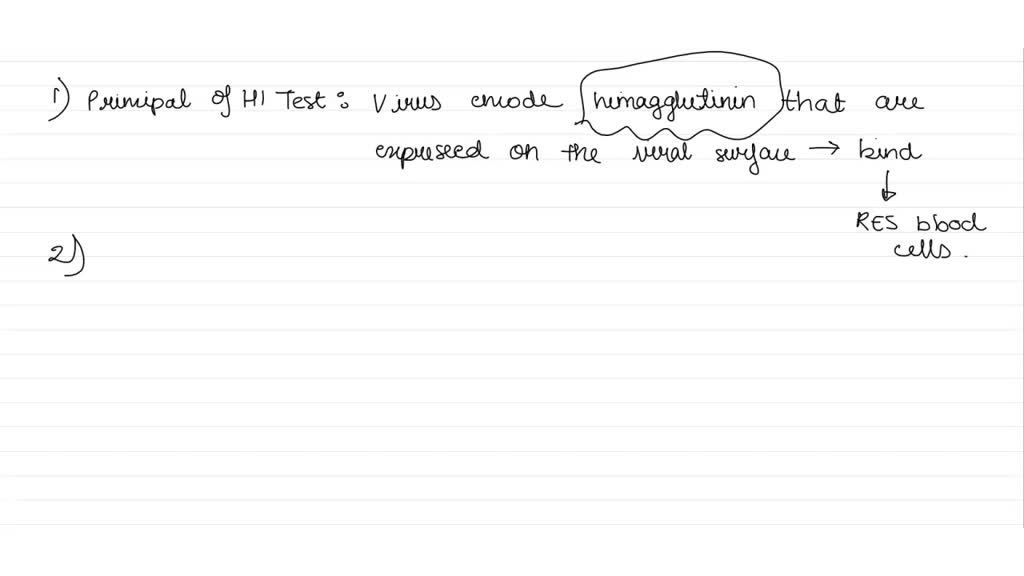 1) Prinipal of HI Test: Virus encode himagglutinin that are
expreseed on the viral surface → bind
↓
RES blood
cells.
2)